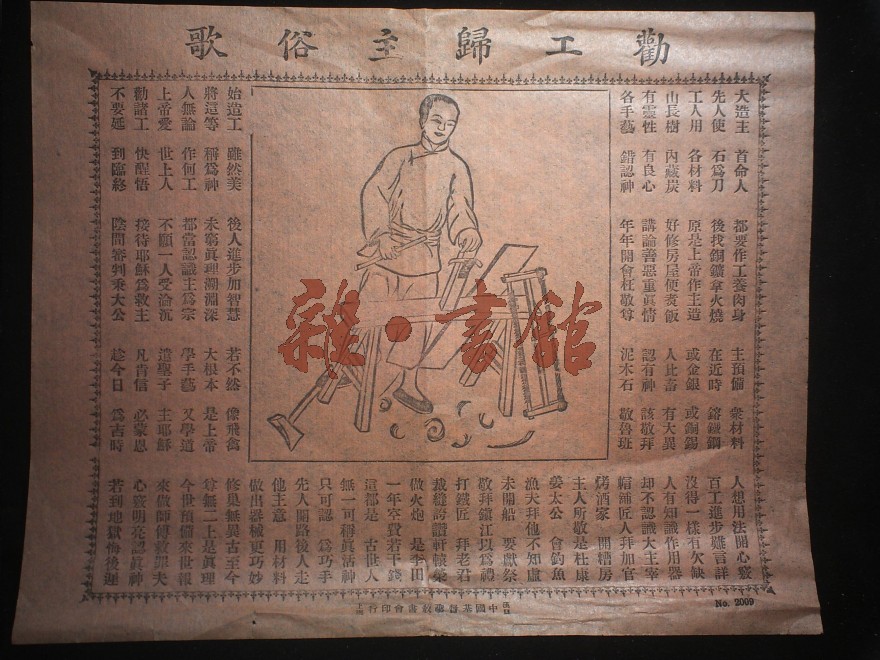 勸工歸主俗歌
大造主 首命人 都要作工養肉身 主預備 衆材料 人想用法開心竅
先人使 石爲刀 後找銅鑛拿火燒 在近時 鎔鍊鋼 百工進步難言詳
工人用 各材料 原是上帝作主造 或金銀 或銅錫 沒得一樣有欠缺
山長樹 內藏炭 好修房屋便煑飯 人比畜 有大異 人有知識作用器
有靈性 有良心 講論善惡重眞情 認有神 該敬拜 却不認識大主宰
各手藝 錯認神 年年開會枉敬尊 泥木石 敬魯班 帽舖匠人拜加官
烤酒家 開糟房
主人所敬是杜康
姜太公 會釣魚
漁夫拜他不知虛
未開船 要獻祭
敬拜鎮江以爲禮
打鐵匠 拜老君
裁縫誇讚軒轅榮
做火炮 是李田
一年空費若干錢
這都是 古世人
無一可稱眞活神
只可認 爲巧手
先人開路後人走
他主意 用材料
做出器械更巧妙
始造工 雖然美 後人進步加智慧 若不然 像飛禽 修巢無異古至今
將這等 稱爲神 未窮眞理溯淵深 大根本 是上帝 尊無二上是眞理
人無論 作何工 都當認識主爲宗 學手藝 又學道 今世預備來世報
上帝愛 世上人 不願一人受淪沉 遣聖子 主耶穌 來做師傅救罪夫
勸諸工 快醒悟 接待耶穌爲救主 凡肯信 必蒙恩 心竅明亮認眞神
不要延 到臨終 陰間審判乘大公 趁今日 爲吉時 若到地獄悔後遲
漢口 中國基督聖教書會印行 上海
No. 2009
雜·書館